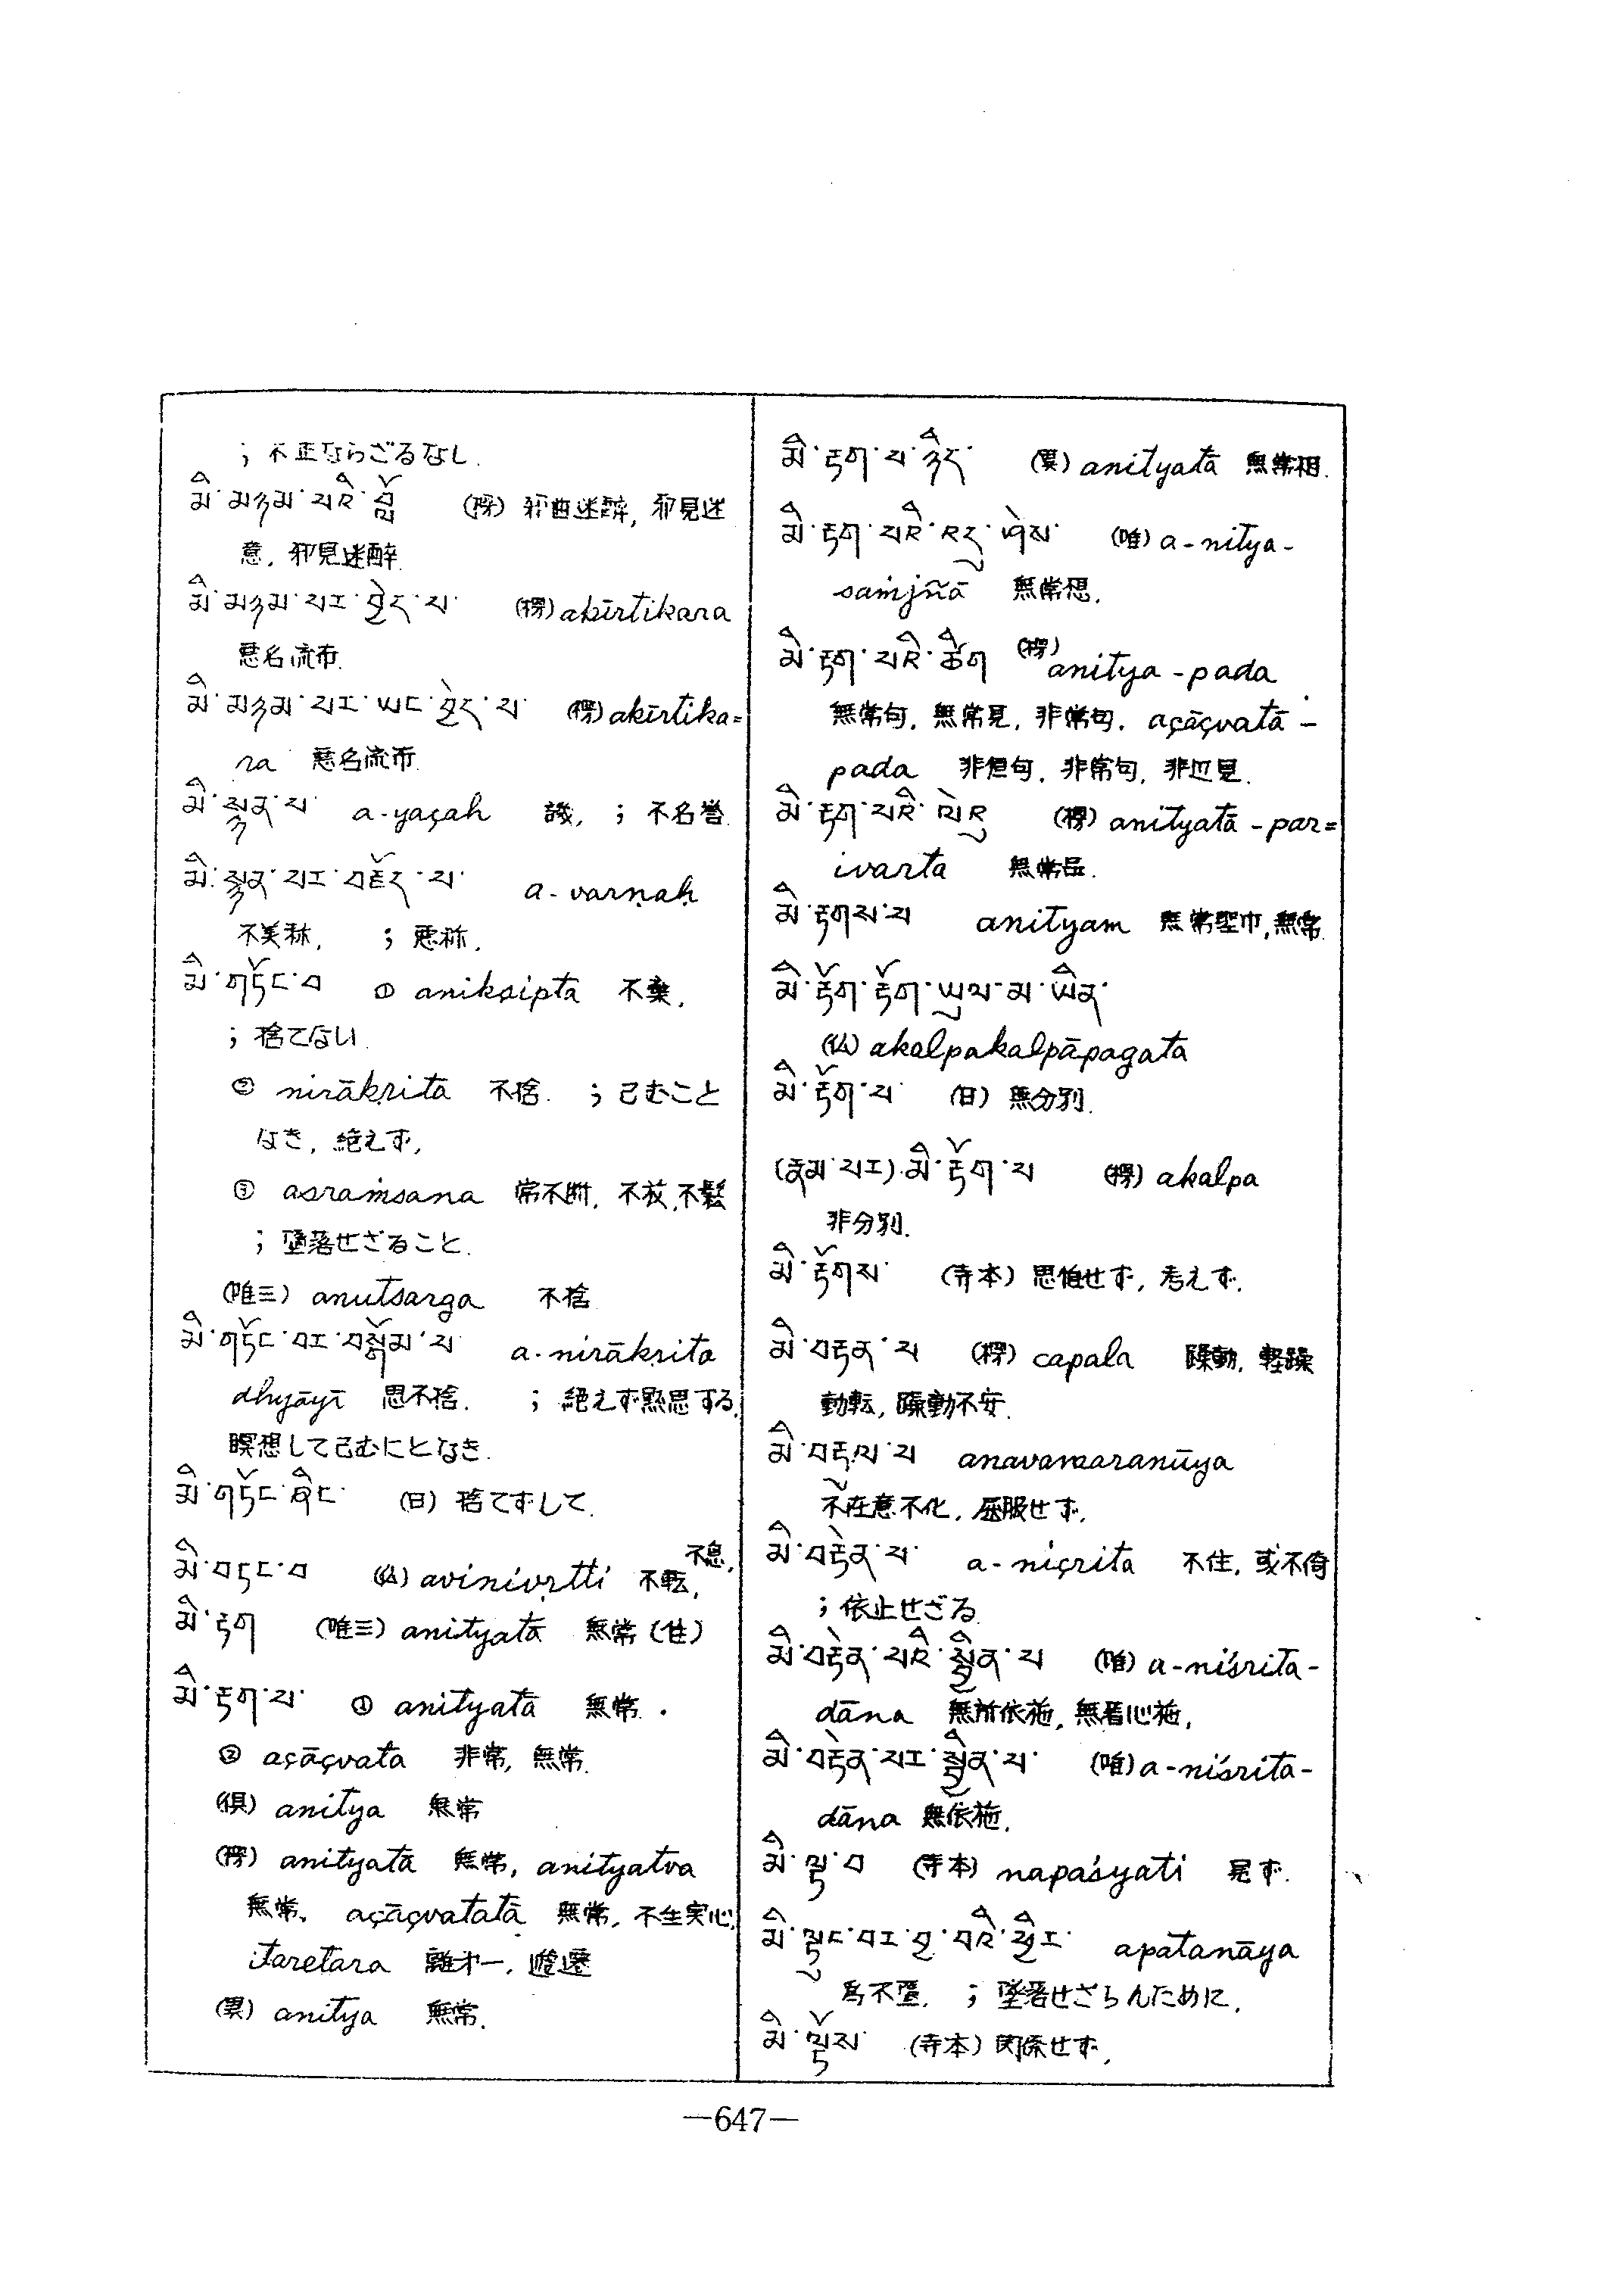 ; 不正ならざるなし.
མི་མཉམ་པའི་བློ་ (楞) 邪曲迷醉, 邪見迷
意, 邪見迷醉.
མི་མཉམ་པར་བྱེད་པ་ (楞) akīrtikara
悪名流布.
མི་མཉམ་པར་ཡང་བྱེད་པ་ (楞) akīrtika=
ra 悪名流布.
མི་སྙན་པ་ a-yaçah 譏, ; 不名誉.
མི་སྙན་པར་བརྗོད་པ་ a-varṇaḥ
不美称, ; 悪称.
མི་གཏོང་བ ① anikṣipta 不棄,
; 捨てない.
② nirākṛita 不捨. ; 己むこと
なき, 絶えず,
③ asraṁsana 常不断, 不放, 不鬆
; 墮落せざること.
(唯三) anutsarga 不捨
མི་གཏོང་བར་བསྒོམ་པ་ a-nirākṛita
dhyāyī 思不捨. ; 絶えず黙思する,
瞑想して己むにとなき.
མི་གཏོང་ཞིང་ (日) 捨てずして.
མི་བཏང་བ (仏) avinivṛtti 不転, 不息,
མི་རྟག (唯三) anityatā 無常 (性)
མི་རྟག་པ་ ① anityatā 無常.
② açāçvata 非常, 無常.
(倶) anitya 無常
(楞) anityatā 無常, anityatva
無常, açāçvatatā 無常, 不生実心,
itaretara 離才一, 遊遷
(異) anitya 無常.
མི་རྟག་པ་ཉིད་ (異) anityatā 無常相.
མི་རྟག་པའི་འདུ་ཤེས་ (唯) a-nitya-
saṁjñā 無常想.
མི་རྟག་པའི་ཚིག (楞) anitya-pada
無常句, 無常見, 非常句. açāçvatā-
pada 非恒句, 非常句, 非 見.
མི་རྟག་པའི་ལེའུ (楞) anityatā-par=
ivarta 無常品.
མི་རྟགས་པ anityam 無常聖巾, 無常.
མི་རྟོག་རྟོག་ཡུལ་མ་ཡིན་
(仏) akalpakalpāpagata
མི་རྟོག་པ་ (日) 無分別.
(རྣམ་པར)་མི་རྟོག་པ (楞) akalpa
非分別.
མི་རྟོགས་ (寺本) 思惟せず, 考えず.
མི་བརྟན་པ (楞) capala 躁動, 軽躁
動転, 躁動不安.
མི་བརྟུལ་པ
不在意不化, 屈服せず,
མི་བརྟེན་པ་ a-niçrita 不住, 或不倚
; 依止せざる.
མི་བརྟེན་པའི་སྦྱིན་པ (唯) a-niśrita-
dāna 無所依施, 無着心施,
མི་བརྟེན་པར་སྦྱིན་པ་ (唯) a-niśrita-
dāna 無依施.
མི་ལྟ་བ (寺本) napaśyati 見ず.
མི་ལྟུང་བར་བྱ་བའི་ཕྱིར་ apatanāya
為不墮. ; 墜落せざらんために.
མི་ལྟོས་ (寺本) 関係せず,
—647—